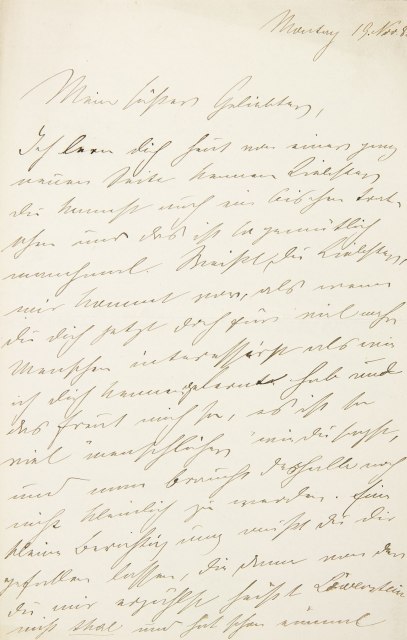 Montag 19. Nov 8
Mein süßer Geliebter,
Ich lern dich heut von einer ganz
neuen Seite kennen Liebster
du kannst auch ein bischen trat-
schen und das ist so gemütlich
manchmal. Weißt du Liebster,
mir kommt vor, als wenn
du dich jetzt doch für viel mehr
Menschen interessirst als wie
ich dich kennengelernt hab und
das freut mich so, es ist so
viel "menschlicher" wie du sagst,
und man braucht deshalb noch
nicht kleinlich zu werden. Eine
kleine Berichtigung mußt du dir
gefallen lassen, die denn von der
du mir erzählst heißt Löwenstein
nicht und hat schon einmal